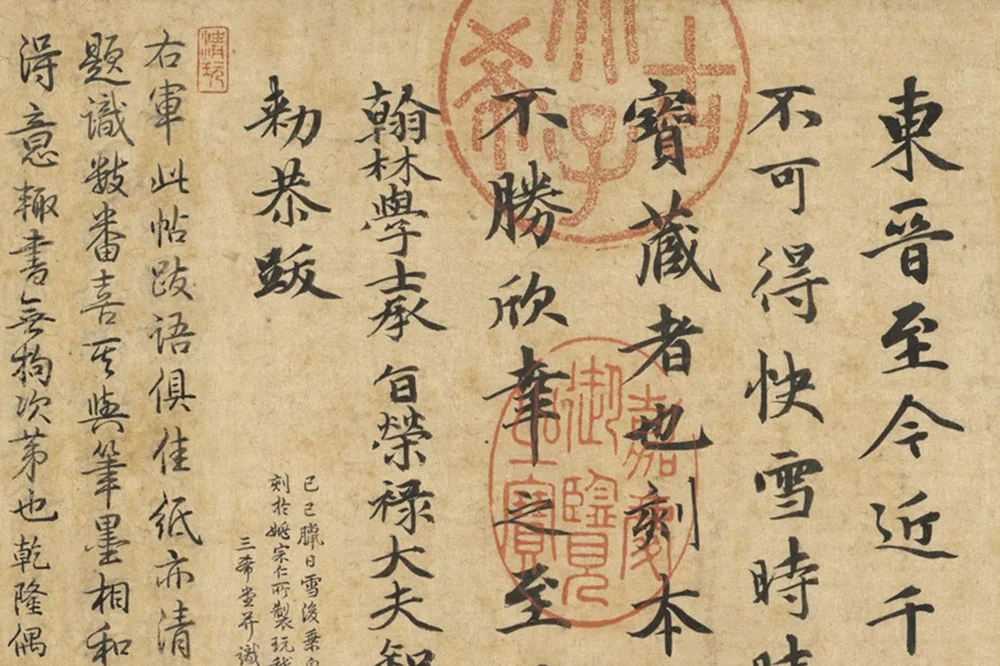 東晉至今近千
不可得快雪時
寶藏者也刻本
不勝欣幸之至
翰林學士承旨榮祿大夫知
勑恭跋
己巳臘日雪後乗
刻於姚宗仁所製玩
三希堂并識
右軍此帖跋語俱佳紙亦清
題識數番喜其與筆墨相和
得意輒書無拘次第也乾隆偶
古希天子
嘉慶御覽之寶
清玩